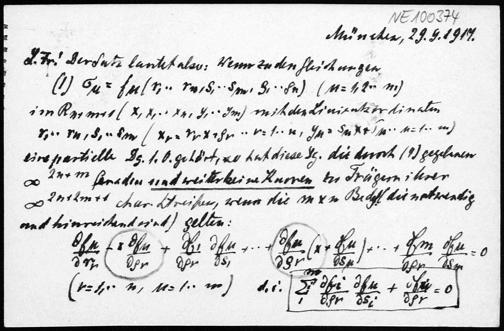 NE100374
München, 29.9.1917.
L. Fr.! Der Satz lautet also: Wenn zu den Gleichungen
(1) σμ = fμ (r1 .. rn, s1 .. sm, ρ1 .. ρn) (μ = 1, 2 .. m)
im Rn+m+1 (x, x1 .. xn, y1 .. ym) mit den Linienkoordinaten
r1 .. rn, s1 .. sm ( xν = rν x + ρν .. ν = 1 .. n, yμ = sμ x + σμ .. μ = 1 .. m)
eine partielle Dg. 1. O. gehört, so hat diese Dg. die durch (1) gegebenen
∞2n+m Geraden und weiter keine Kurven zu Trägern ihrer
∞2n+2m+1 char. Streifen, wenn die m × n Bedggl. die notwendig
und hinreichend sind) gelten:
∂fμ/∂rν - x ∂fμ/∂ρν + ∂f1/∂ρν ∂fμ/∂s1 + ... + ∂fμ/∂ρν (x + ∂fμ/∂sμ) + ... + ∂fm/∂ρν ∂fμ/∂sm = 0
(ν = 1, .. n, μ = 1 .. m) d.i. Σ1m ∂fi/∂ρν ∂fμ/∂si + ∂fμ/∂rν = 0